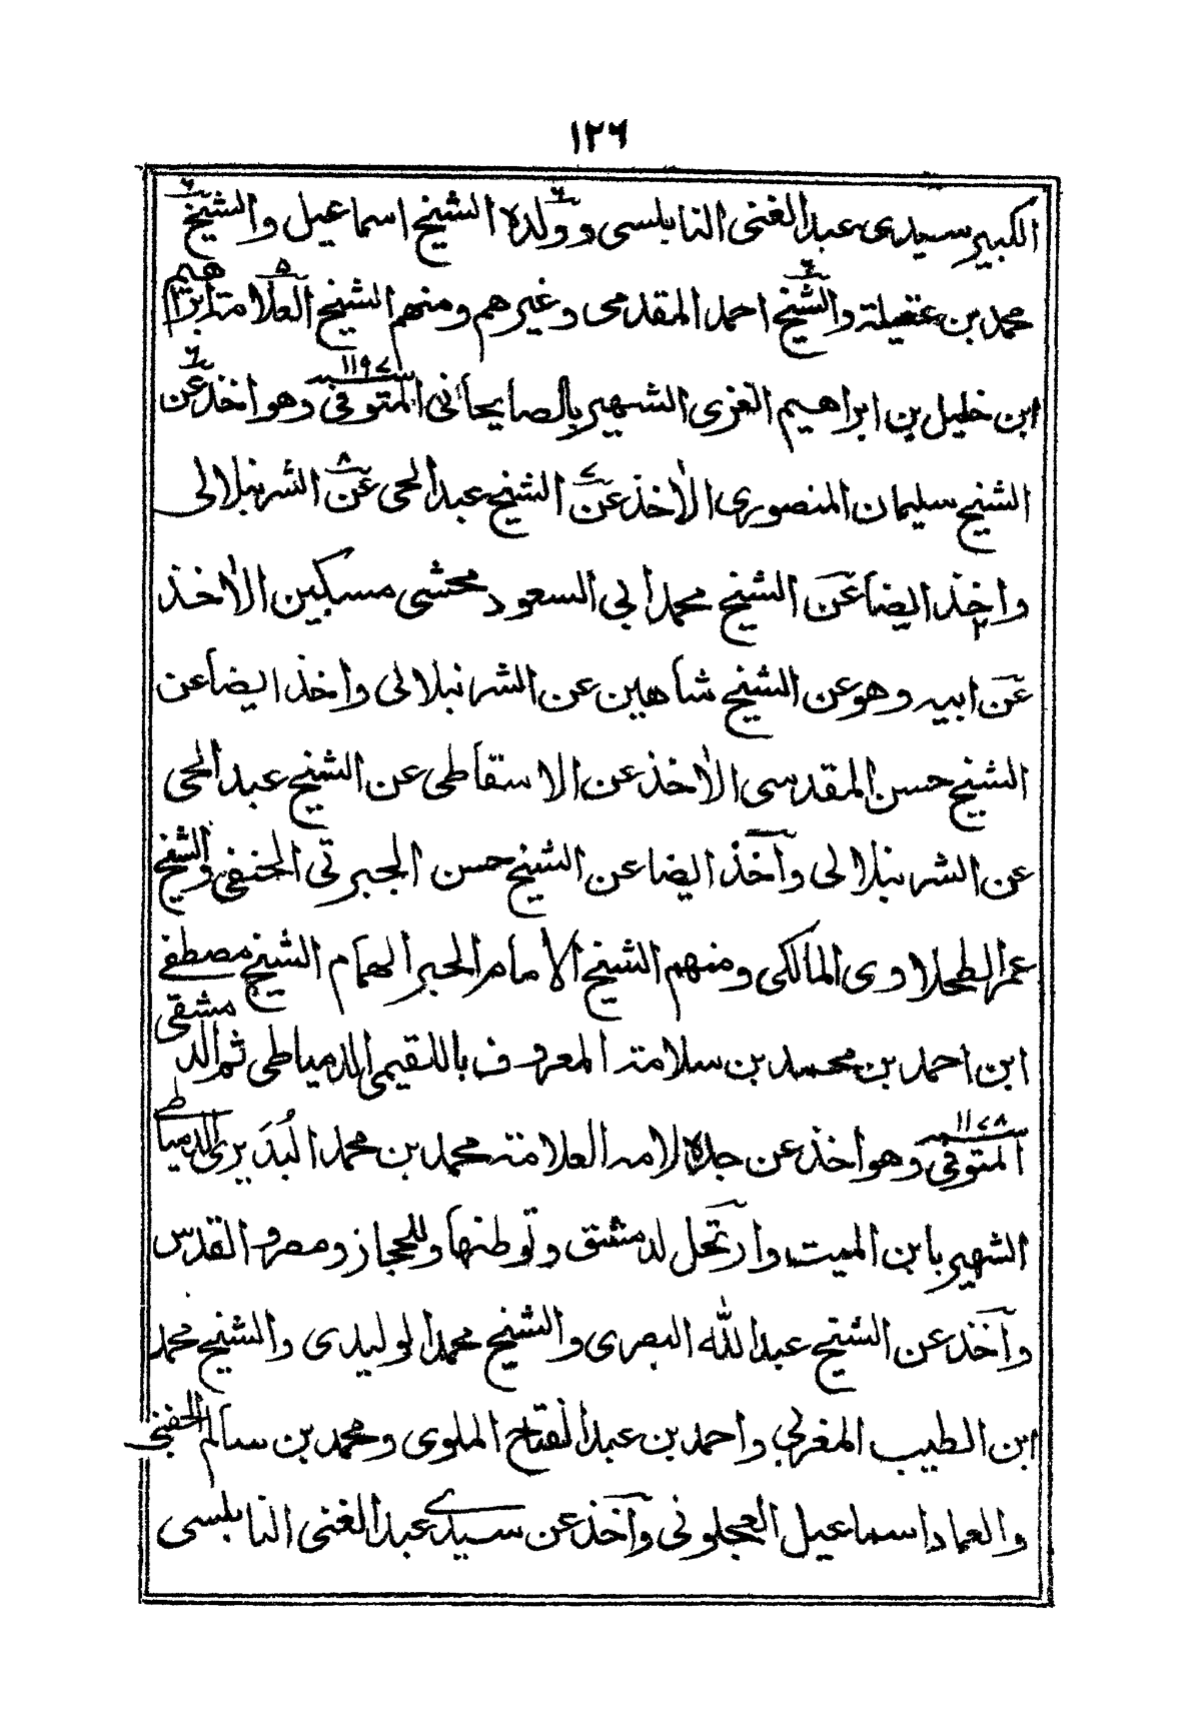 ١٢٦
الكبير سيدى عبد الغنى النابلسى وولده الشيخ اسماعيل والشيخ
محمد بن عقيلة والشيخ احمد المقدمى وغيرهم ومنهم الشيخ العلامة ابراهيم
ابن خليل بن ابراهيم الغزى الشهير بالصايحانى المتوفى ١١٩٧ وهو اخذ عن
الشيخ سليمان المنصورى الاخذ عن الشيخ عبد الحى عن الشرنبلالى
واخذ ايضا عن الشيخ محمد ابى السعود محشى مسكين الاخذ
عن ابيه وهو عن الشيخ شاهين عن الشرنبلالى واخذ ايضا عن
الشيخ حسن المقدسى الاخذ عن الاسقاطى عن الشيخ عبد الحى
عن الشرنبلالى وآخذ ايضا عن الشيخ حسن الجبرتى الحنفى والشيخ
عمر الطحلاوى المالكى ومنهم الشيخ الامام الحبر الهمام الشيخ مصطفى
ابن احمد بن محمد بن سلامة المعروف باللقيمى الدمياطى ثم الدمشقى
المتوفى ١١٧٨ وهو اخذ عن جده لامه العلامة محمد بن محمد البُدَيرى الدمياطى
الشهير بابن الميت وارتحل لدمشق وتوطنها وللحجاز ومصر والقدس
وآخذ عن الشيخ عبد الله البصرى والشيخ محمد الوليدى والشيخ محمد
ابن الطيب المغربى واحمد بن عبد الفتاح الملوى ومحمد بن سالم الحفنى
والعماد اسماعيل العجلونى وآخذ عن سيدى عبد الغنى النابلسى